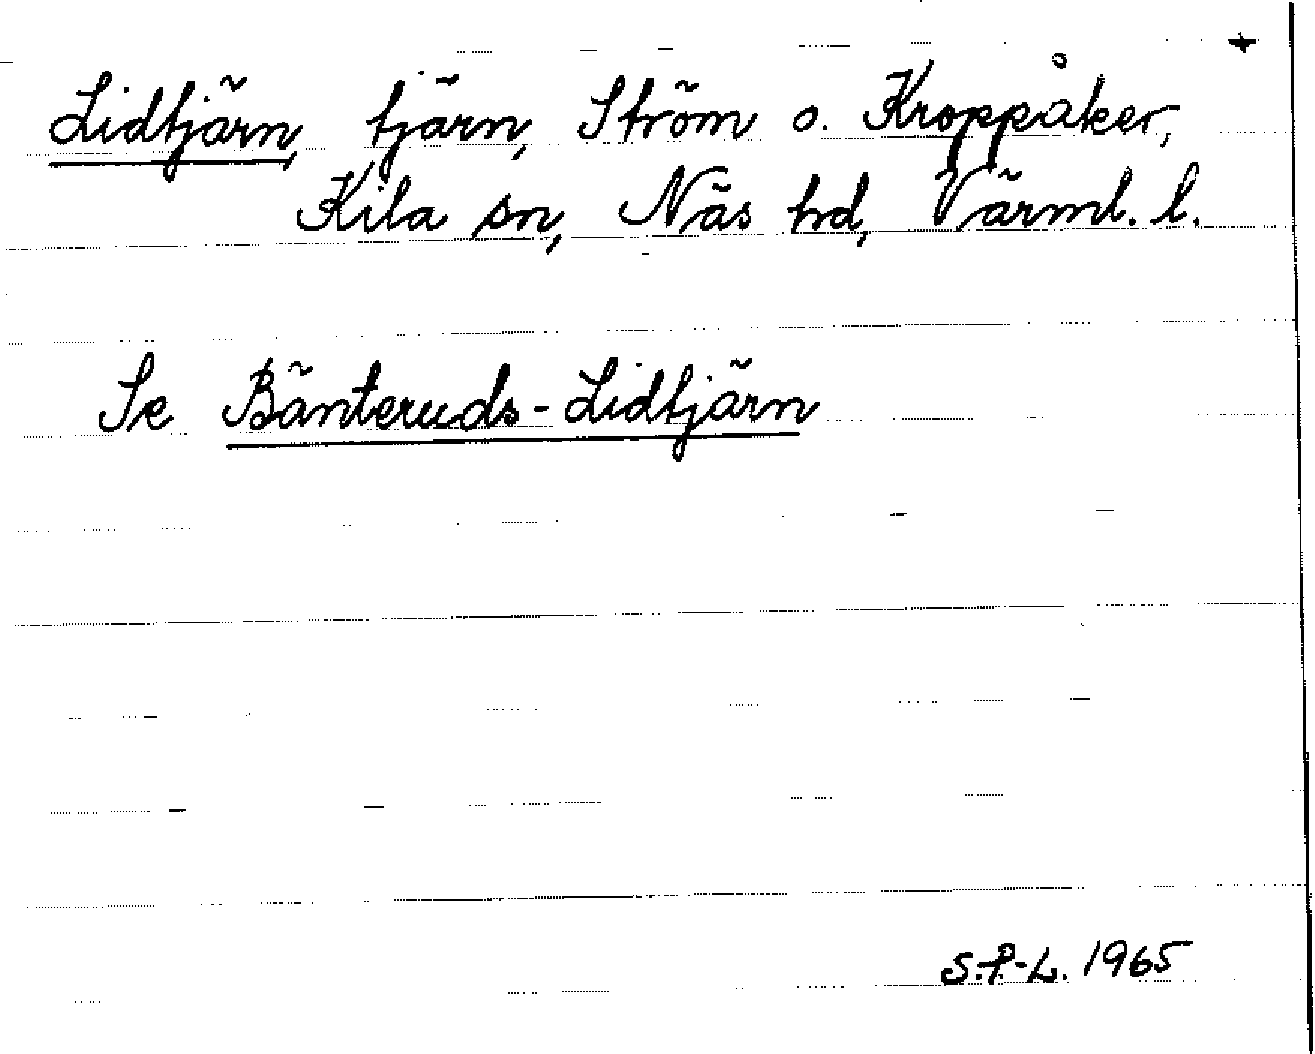 Lidtjärn, tjärn, Ström o. Kroppåker,
Kila sn, Näs hd, Värml. l.
Se Bänteruds-Lidtjärn
S.P-L. 1965